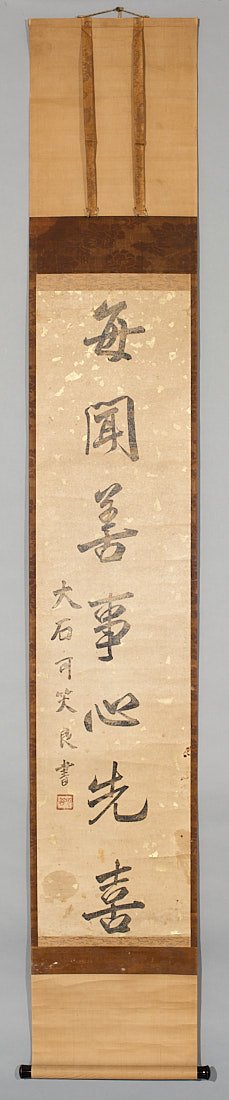 每聞善事心先喜
大石可笑良書